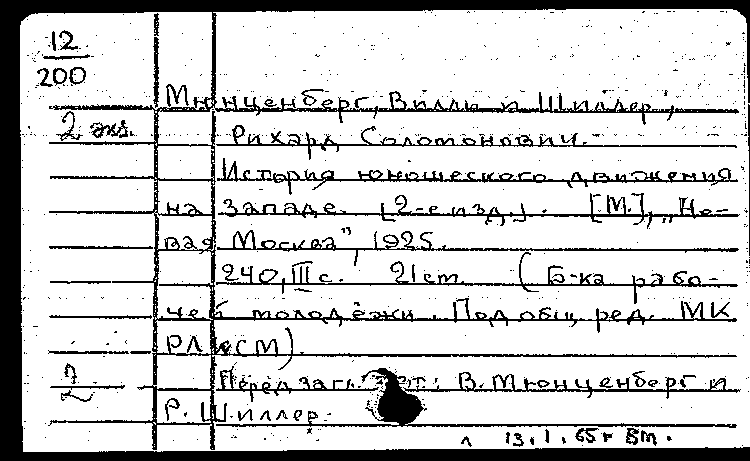 12
200
2 экз.
Мюнценберг, Вилли и Шиллер,
Рихард Соломонович.
История юношеского движения
на Западе. [2-е изд.]. [М.], „Но-
вая Москва", 1925.
240, III с. 21 см. (Б-ка рабо-
чей молодёжи. Под общ. ред. МК
РЛКСМ).
Перед загл. авт.: В. Мюнценберг и
Р. Шиллер.
13.I.65г Вт.